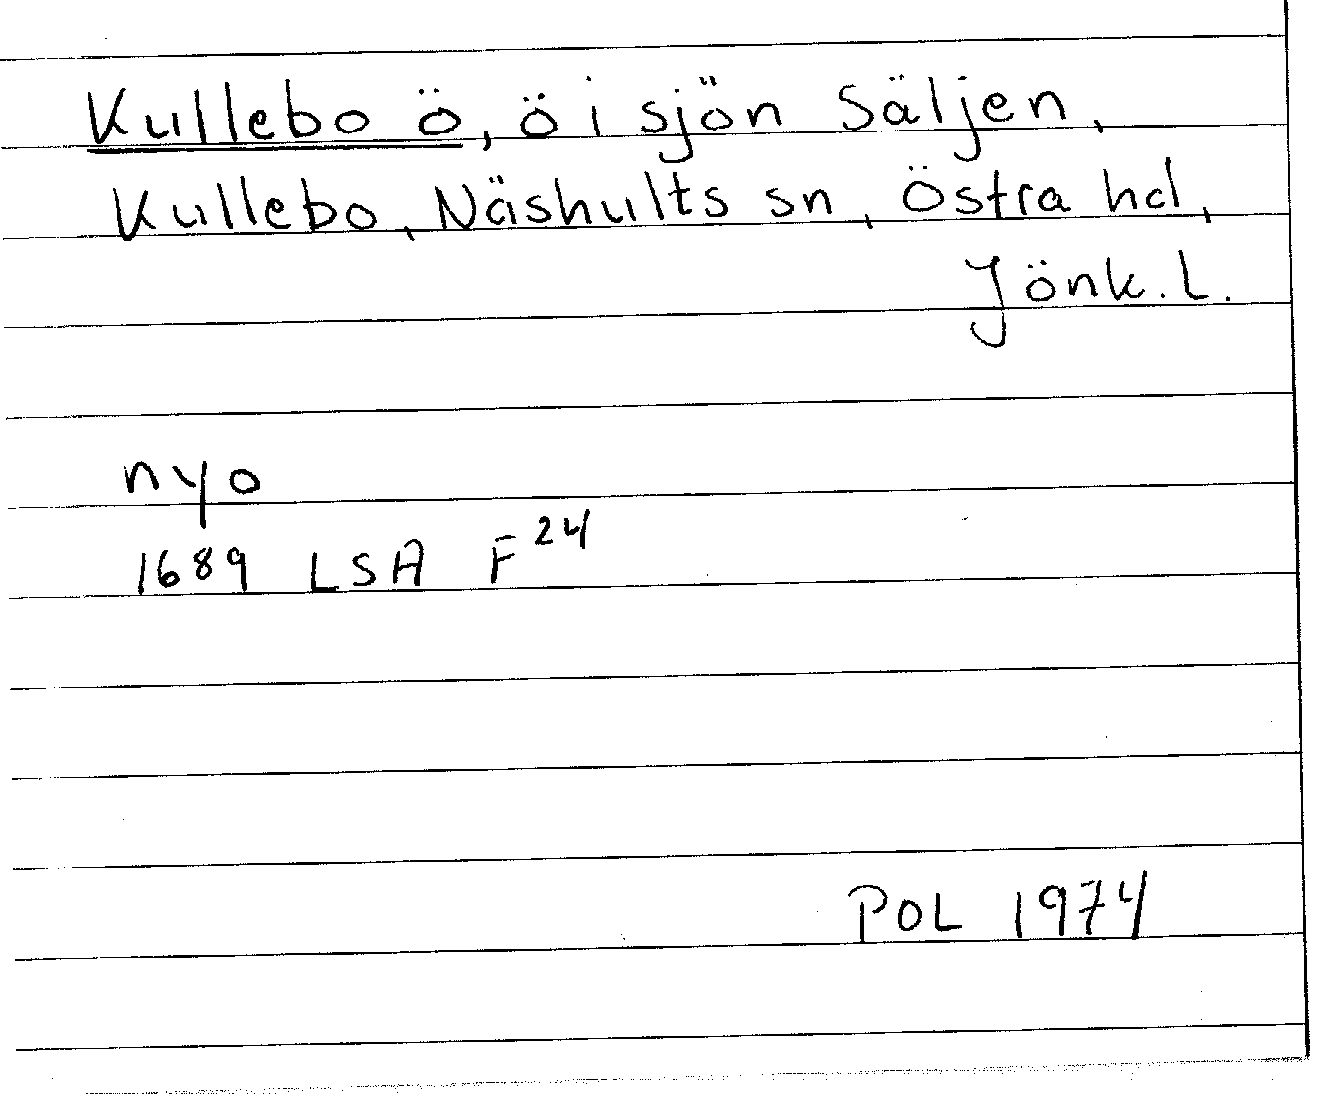 Kullebo ö, ö i sjön Säljen,
Kullebo, Näshults sn, Östra hd,
Jönk. L.
nyo
1689 LSA F 24
POL 1974